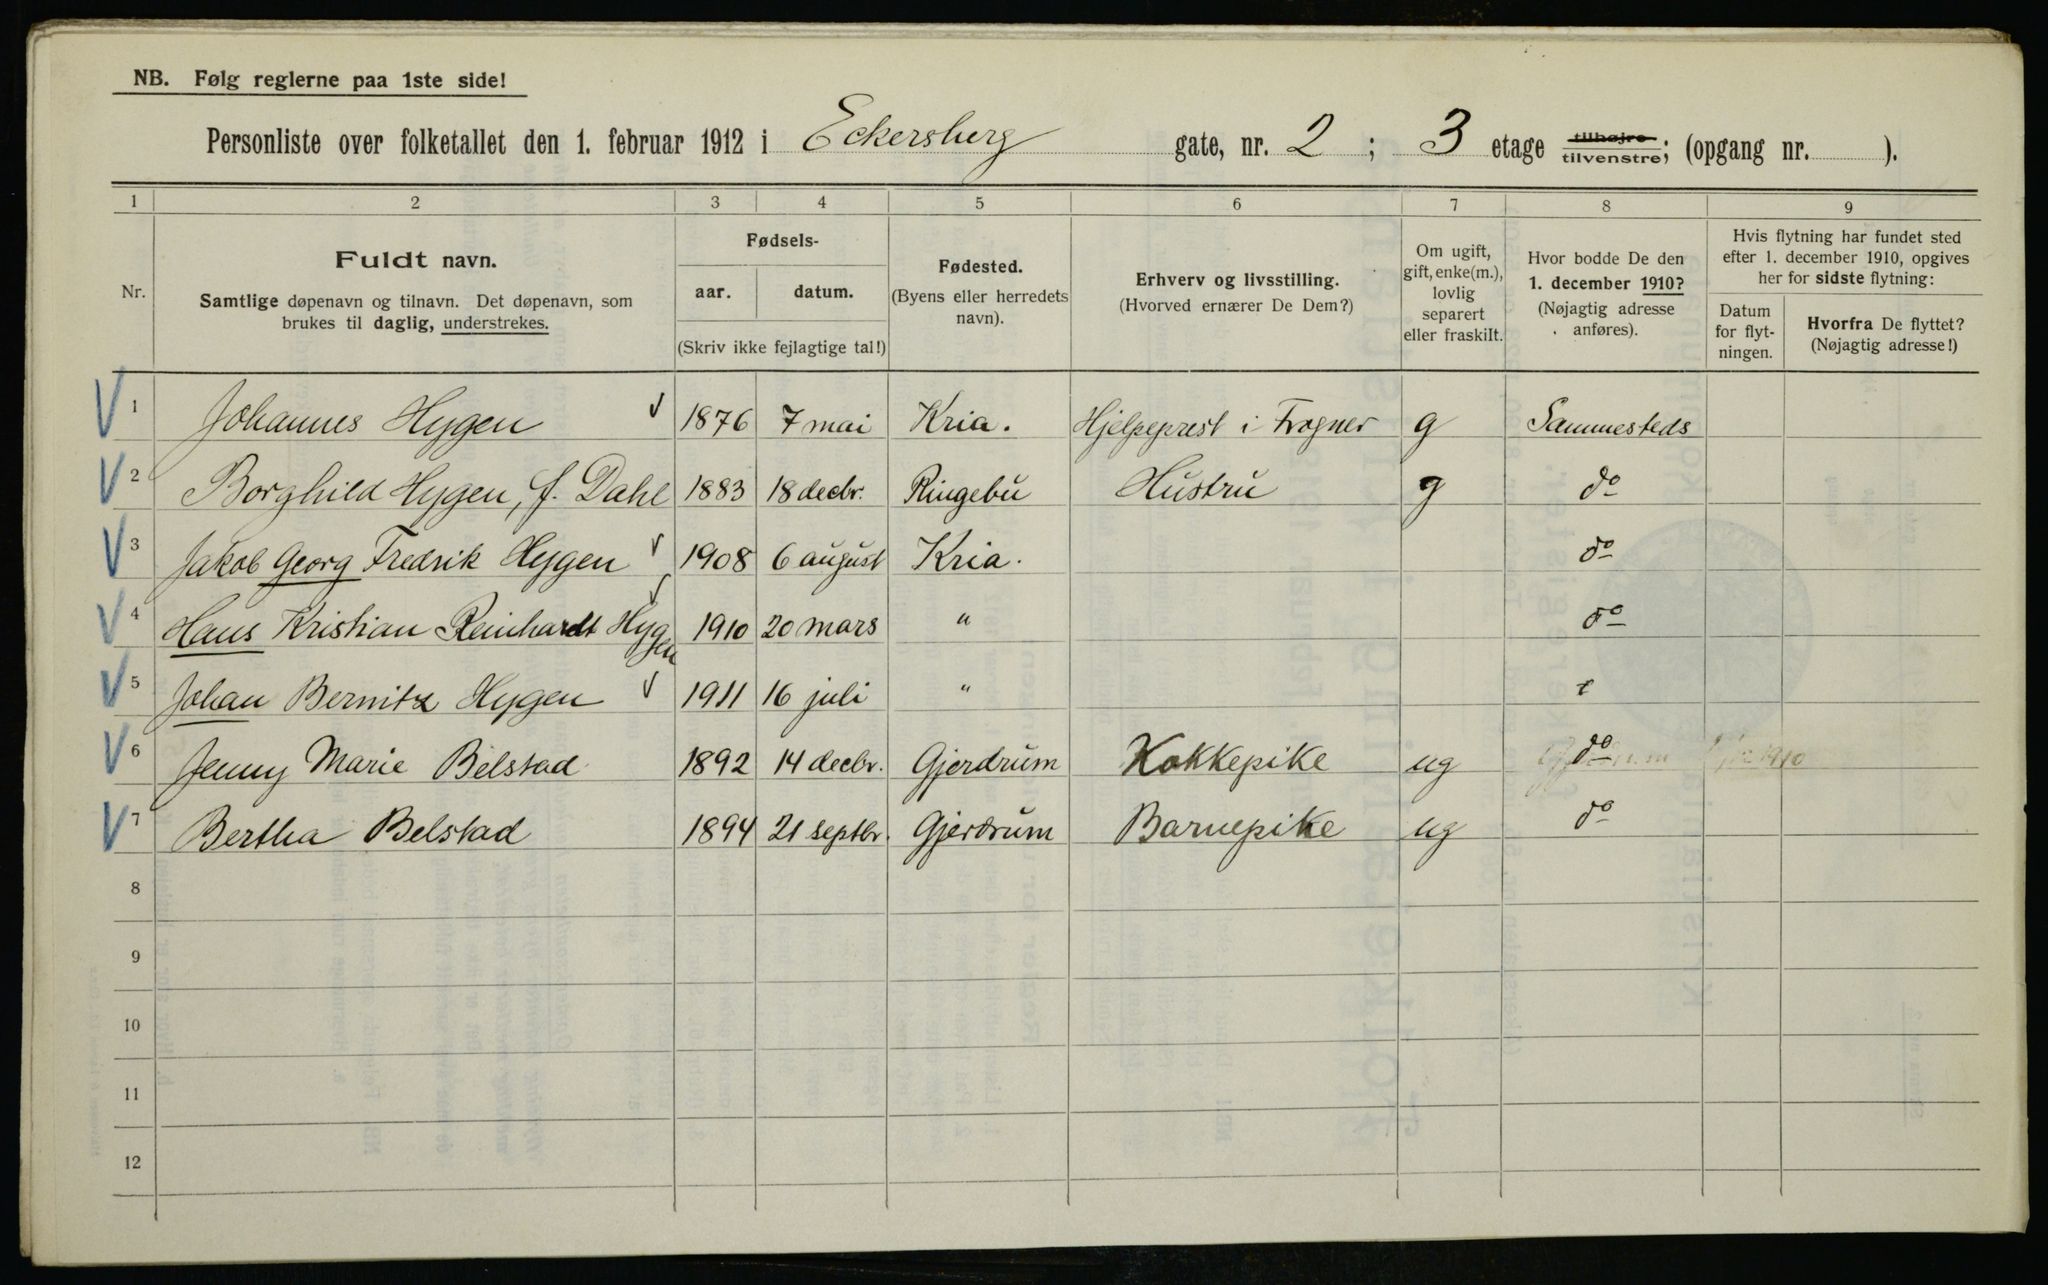 NB. Følg reglerne paa 1ste side!
Personliste over folketallet den 1. februar 1912 i Eckersberg gate, nr. 2 ; 3 etage tilhøjre tilvenstre; (opgang nr. ).
1 2 3 4 5 6 7 8 9
Nr.
Fuldt navn.
Samtlige døpenavn og tilnavn. Det døpenavn, som
brukes til daglig, understrekes.
Fødsels-
aar. datum.
(Skriv ikke fejlagtige tal!)
Fødested.
(Byens eller herredets
navn).
Erhverv og livsstilling.
(Hvorved ernærer De Dem?)
Om ugift,
gift, enke(m.),
lovlig
separert
eller fraskilt.
Hvor bodde De den
1. december 1910?
(Nøjagtig adresse
anføres).
Hvis flytning har fundet sted
efter 1. december 1910, opgives
her for sidste flytning:
Datum
for flyt-
ningen.
Hvorfra De flyttet?
(Nøjagtig adresse!)
1 Johannes Hygen 1876 7 mai Kria. Hjelpeprest i Frogner g Sammesteds
2 Borghild Hygen, f. Dahl 1883 18 decbr. Ringebu Hustru g do
3 Jakob Georg Fredrik Hygen 1908 6 august Kria. do
4 Hans Kristian Reinhardt Hygen 1910 20 mars " do
5 Johan Bernitz Hygen 1911 16 juli "
6 Jenny Marie Belstad 1892 14 decbr. Gjerdrum Kokkepike ug do 1910
7 Bertha Belstad 1894 21 septbr. Gjerdrum Barnepike ug do
8
9
10
11
12